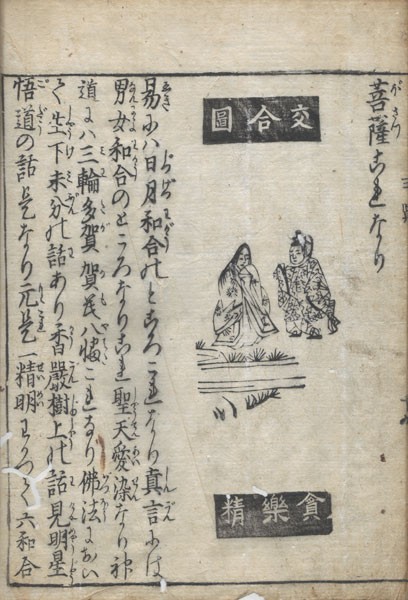 菩薩これなり
交合圖
貪樂精
易には日月和合のところこれなり真言には
男女和合のところなりこれ聖天愛染なり神
道には三輪多賀賀茂八幡これなり佛法におい
て生下未分の話あり香嚴樹上の話見明星
悟道の話是なり元是一精明わかつて六和合